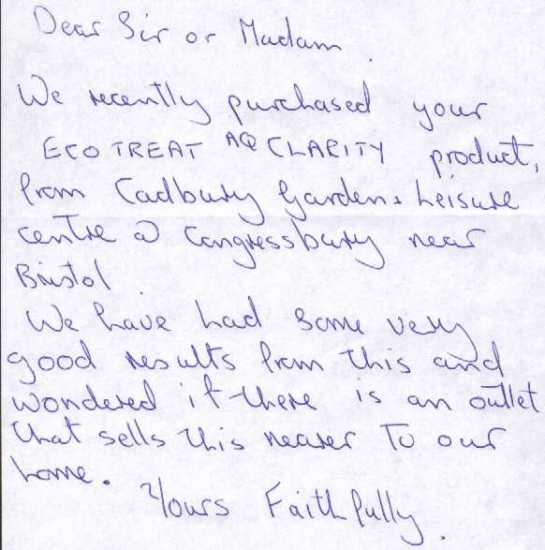 Dear Sir or Madam.
We recently purchased your
ECOTREAT AQ CLARITY product,
from Cadbury Garden & Leisure
centre @ Congressbury near
Bristol.
We have had some very
good results from this and
wondered if there is an outlet
that sells this nearer to our
home.
Yours Faithfully.